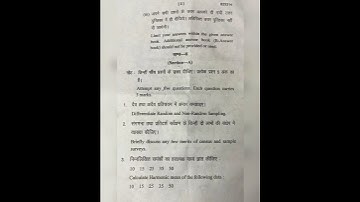 (ii) आपको सभी प्रश्नों के उत्तर दी गयी उत्तर
पुस्तिका में ही लिखने हैं। अतिरिक्त उत्तर पुस्तिका नहीं
दी जायेगी।
Limit your answers within the given answer
book. Additional answer book (B-Answer
book) should not be provided or used.
(Section-A)
नोट : किन्हीं पाँच प्रश्नों के उत्तर दीजिए। प्रत्येक प्रश्न 5 अंक का
है।
Attempt any five questions. Each question carries
5 marks.
1. दैव तथा अदैव प्रतिचयन में अन्तर बताइए।
Differentiate Random and Non-Random Sampling.
2. संगणना तथा प्रतिदर्श सर्वेक्षण के किन्हीं दो गुणों की संक्षेप में
व्याख्या कीजिए।
Briefly discuss any two merits of census and sample
surveys.
3. निम्नलिखित समंकों का हरात्मक माध्य ज्ञात कीजिए :
10 15 25 35 50
Calculate Harmonic mean of the following data :
10 15 25 35 50